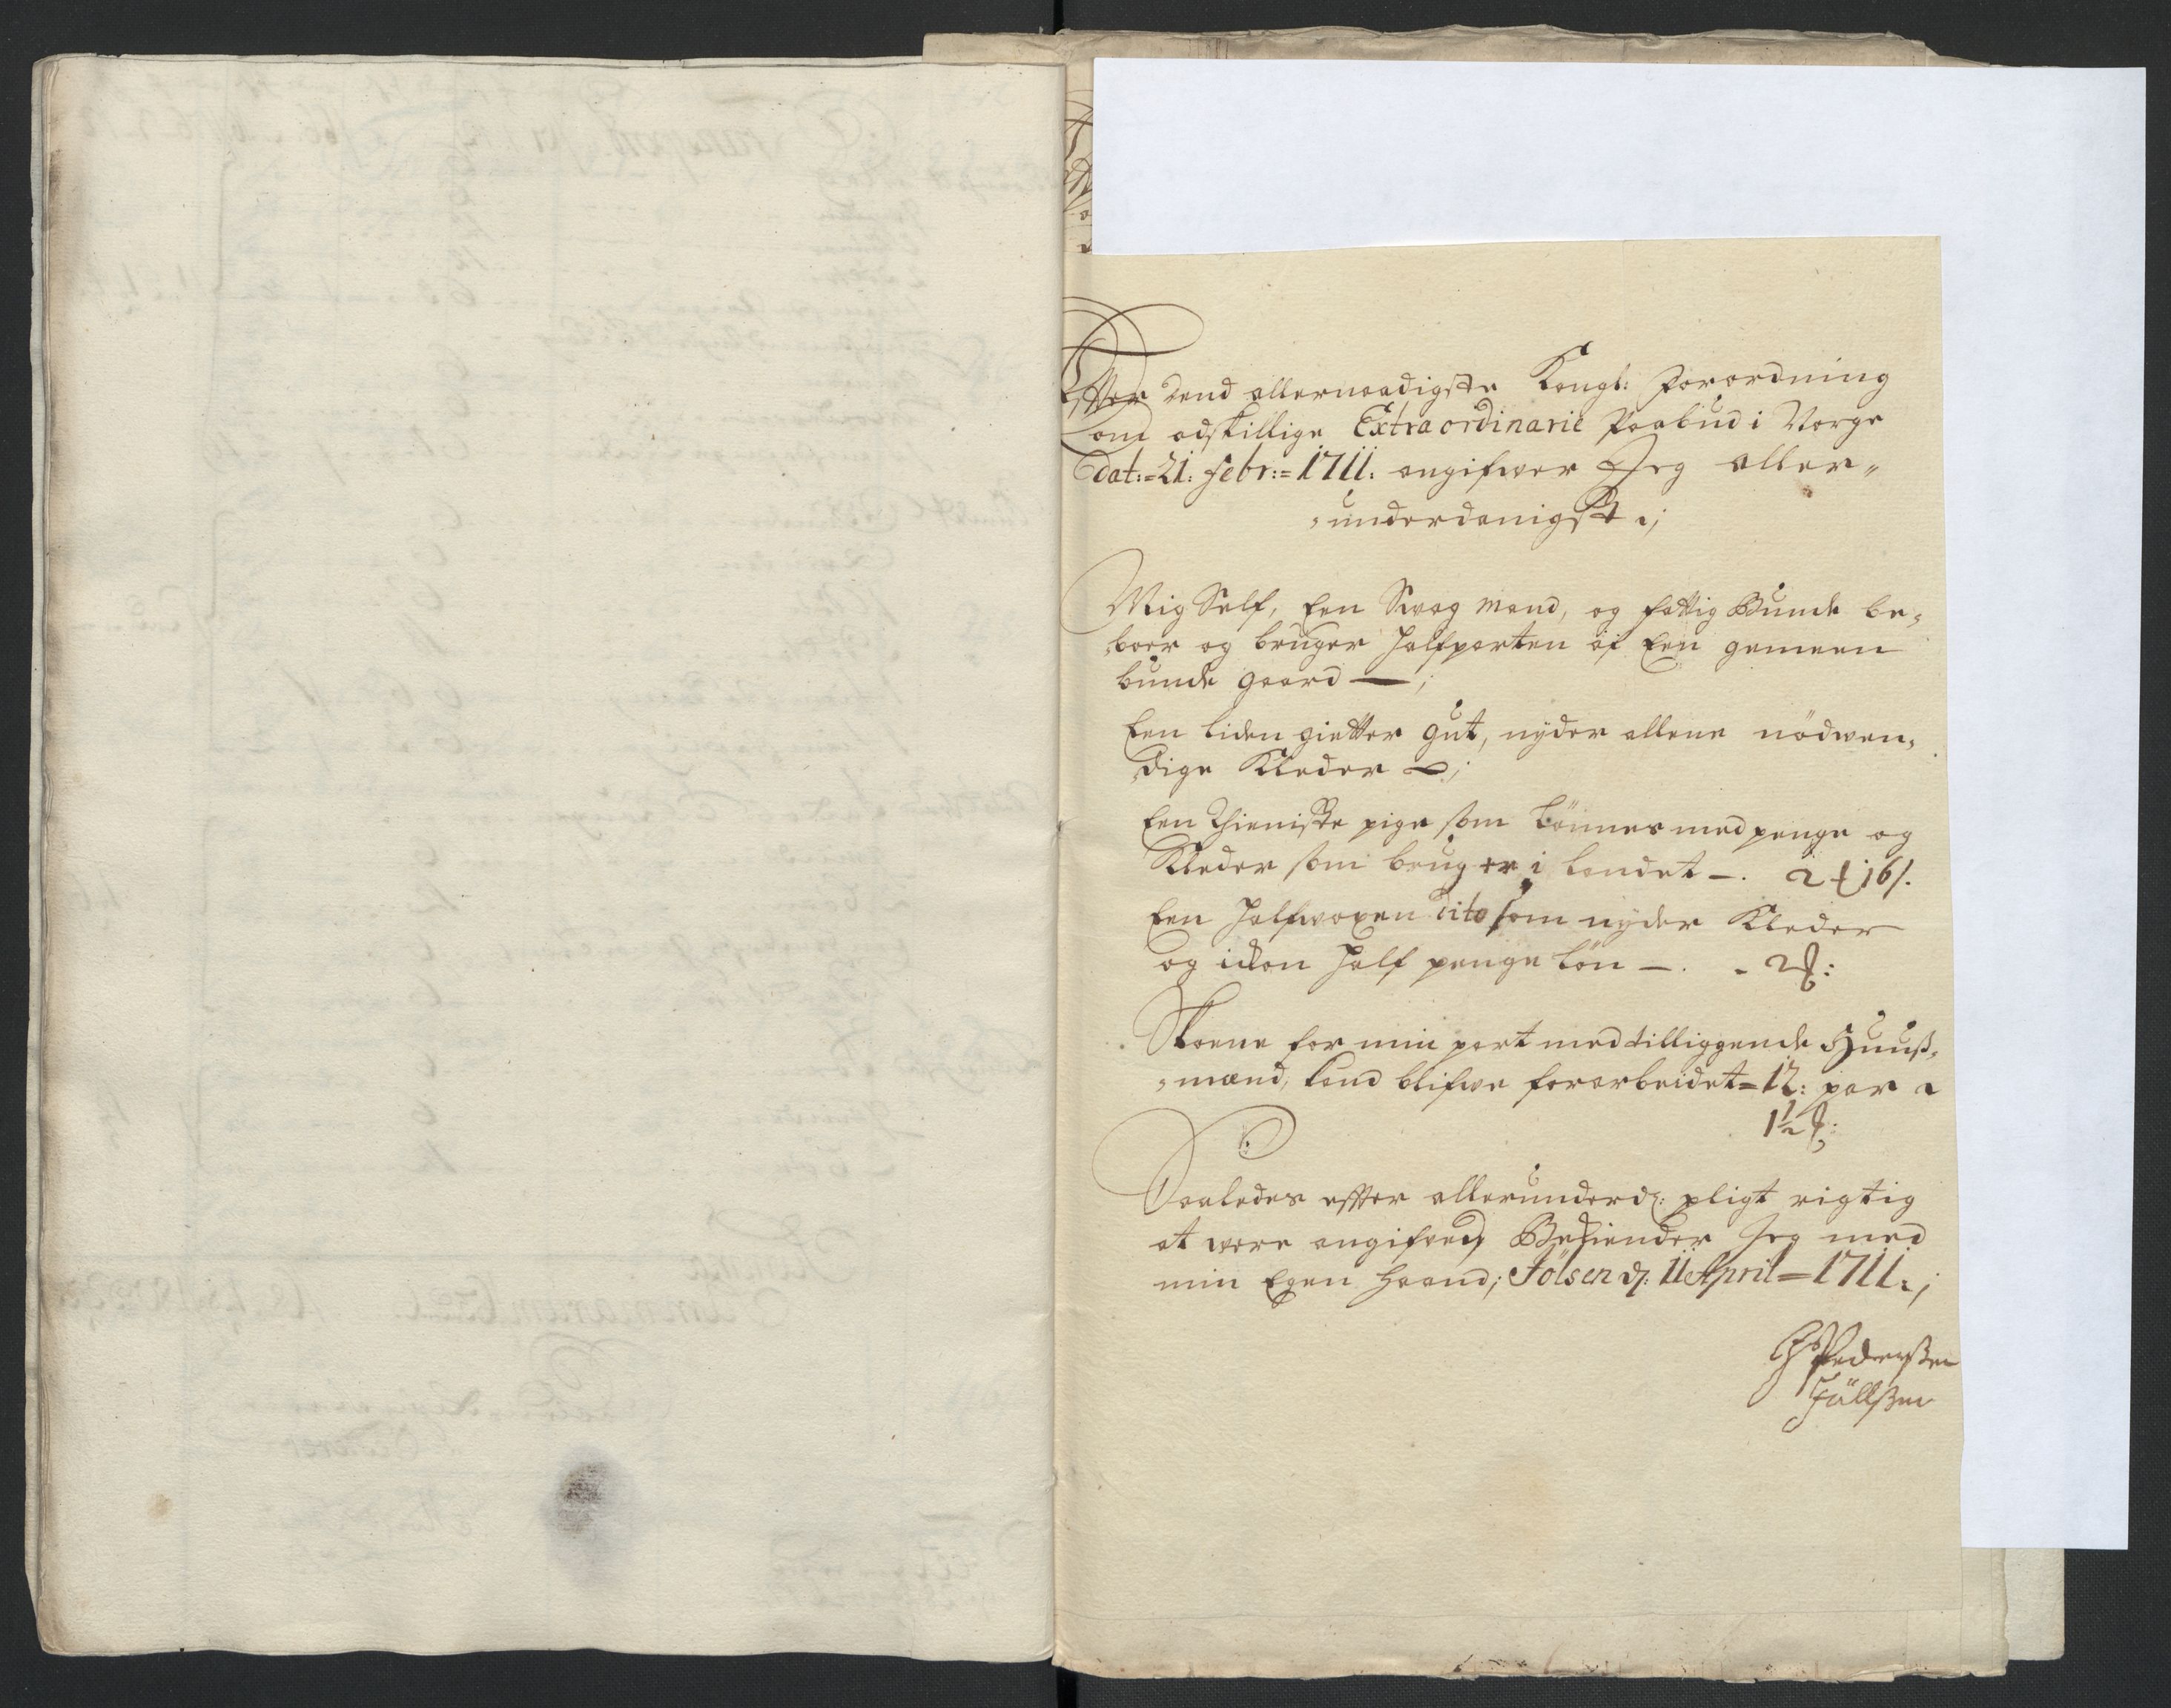 Effter dend allernaadigste Kongl: Forordning
om adskillige Extraordinarie Paabud i Norge
dat:= 21: Febr:= 1711: angifwer Jeg aller„
„underdanigst;
Mig Self, Een Swag mand, og fattig Bunde be„
„boer og bruger halfparten af Een gemeen
bunde gaard —;
Een liden gietter gut, nyder allene nödwen„
„dige Kleder —;
Een Thieniste pige som lönnes med penge og
Kleder som bruger i landet —. 2 16 s.
Een halfwoxen dito som nyder Kleder
og ickon half penge lön —. - 2
Skoene for min part med tilliggende Huuß„
„mænd, kand blifwe forarbeidet = 12: par a
1½
Saaledes effter allerunderd: pligt rigtig
at were angifved, Bekiender Jeg med
min Egen haand; Jölsen d: 11 April = 1711:;
Pederßen
Jüllßen